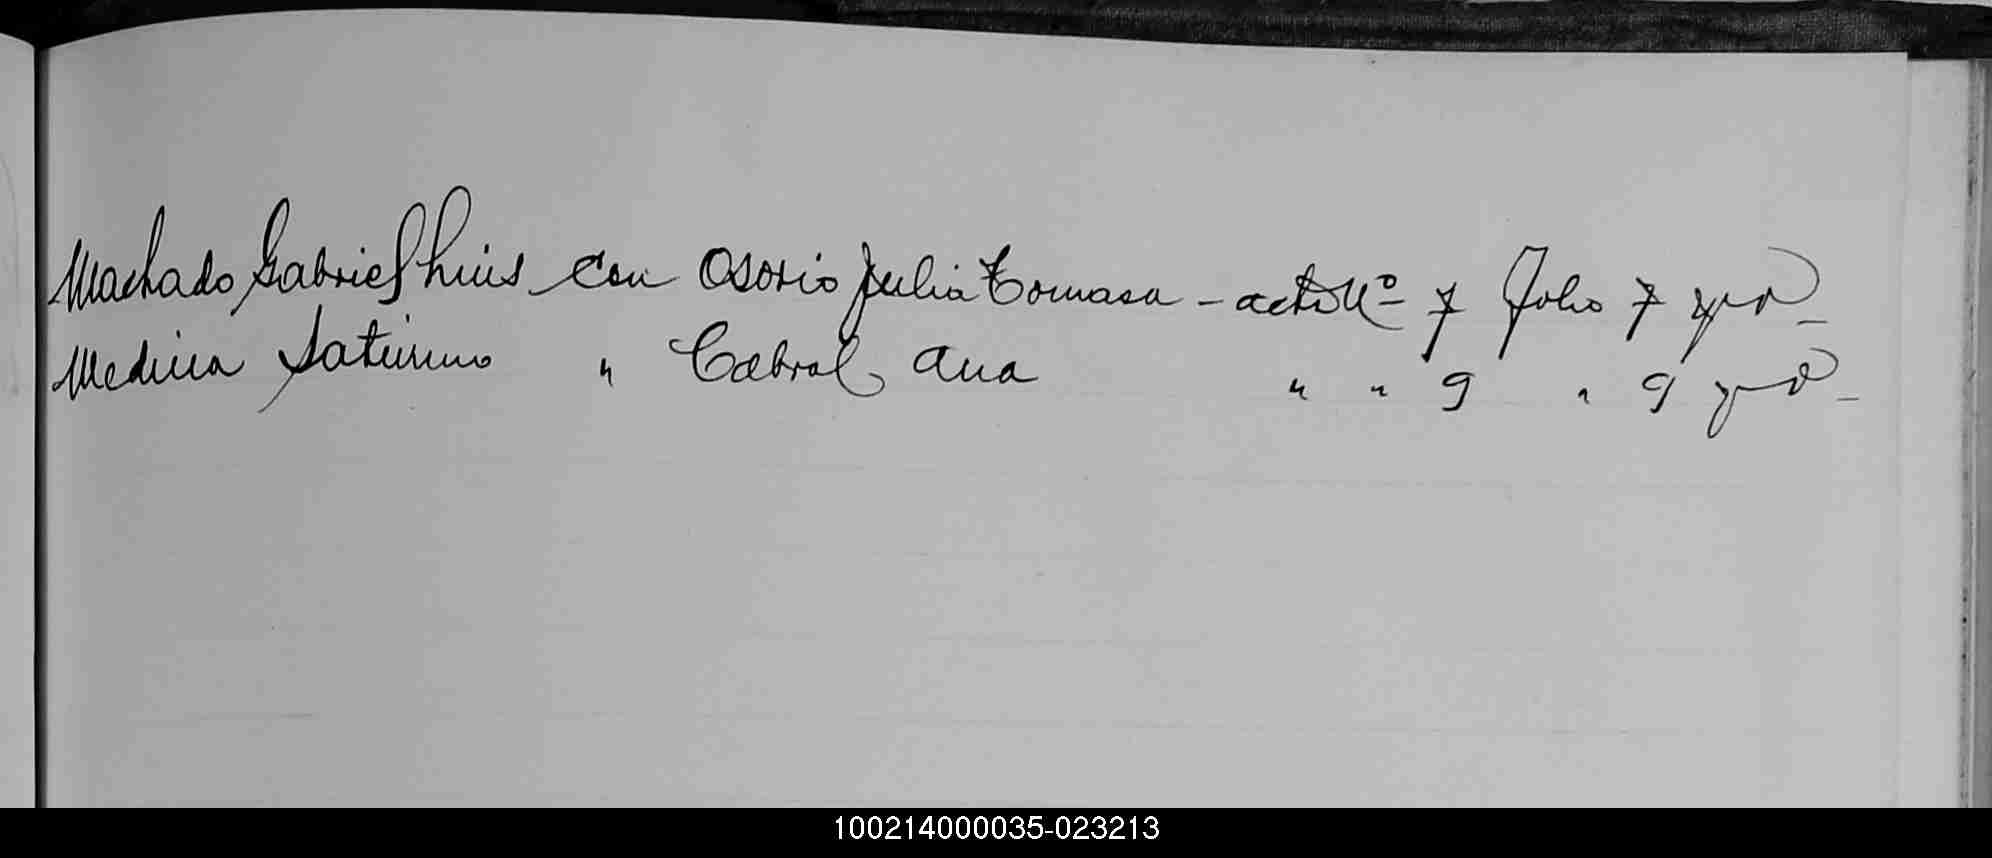 Machado Gabriel Luis con Osorio Julia Tomasa - acta Nº 7 Folio 7
Medina Saturnino " Cabral Ana " " 9 " 9
100214000035-023213